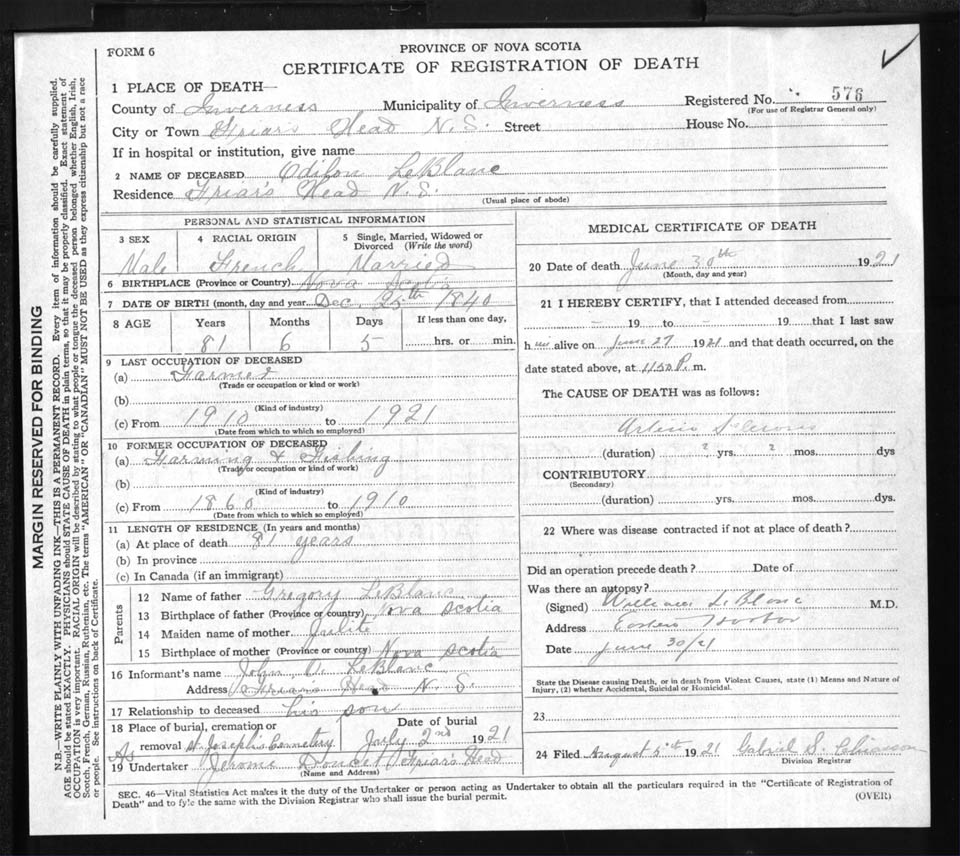 FORM 6
PROVINCE OF NOVA SCOTIA
CERTIFICATE OF REGISTRATION OF DEATH
1 PLACE OF DEATH—
County of Inverness Municipality of Inverness Registered No. 576
(For use of Registrar General only)
City or Town Friar's Head N.S. Street House No.
If in hospital or institution, give name
2 NAME OF DECEASED Odilon LeBlanc
Residence Friar's Head N.S.
(Usual place of abode)
PERSONAL AND STATISTICAL INFORMATION
3 SEX 4 RACIAL ORIGIN 5 Single, Married, Widowed or Divorced (Write the word)
Male French Married
6 BIRTHPLACE (Province or Country) Nova Scotia
7 DATE OF BIRTH (month, day and year) Dec, 25th 1840
8 AGE Years Months Days If less than one day,
81 6 5 hrs. or min.
9 LAST OCCUPATION OF DECEASED
(a) Farmer
(Trade or occupation or kind or work)
(b)
(Kind of industry)
(c) From 1910 to 1921
(Date from which to which so employed)
10 FORMER OCCUPATION OF DECEASED
(a) Farming & Fishing
(Trade or occupation or kind of work)
(b)
(Kind of industry)
(c) From 1860 to 1910
(Date from which to which so employed)
11 LENGTH OF RESIDENCE (In years and months)
(a) At place of death 81 years
(b) In province
(c) In Canada (if an immigrant)
Parents
12 Name of father Gregory LeBlanc
13 Birthplace of father (Province or country) Nova Scotia
14 Maiden name of mother
15 Birthplace of mother (Province or country) Nova Scotia
16 Informant's name John O. LeBlanc
Address Friars Head N. S.
17 Relationship to deceased his son
18 Place of burial, cremation or Date of burial
removal St. Joseph's Cemetery July 2nd 1921
19 Undertaker Jerome Doucet Friar's Head
(Name and Address)
MEDICAL CERTIFICATE OF DEATH
20 Date of death June 30th 1921
(Month, day and year)
21 I HEREBY CERTIFY, that I attended deceased from
– 19 to – 19 that I last saw
h im alive on June 27 1921 and that death occurred, on the
date stated above, at 11.50 P. m.
The CAUSE OF DEATH was as follows:
Arterio Sclerosis
(duration) ? yrs. ? mos. dys
CONTRIBUTORY
(Secondary)
(duration) yrs. mos. dys.
22 Where was disease contracted if not at place of death?
Did an operation precede death? Date of
Was there an autopsy?
(Signed) William LeBlanc M.D.
Address Eastern Harbor
Date June 30/21
State the Disease causing Death, or in death from Violent Causes, state (1) Means and Nature of
Injury, (2) whether Accidental, Suicidal or Homicidal.
23
24 Filed August 5th 1921 Gabriel S. Chiasson
Division Registrar
SEC. 46—Vital Statistics Act makes it the duty of the Undertaker or person acting as Undertaker to obtain all the particulars required in the "Certificate of Registration of
Death" and to fyle the same with the Division Registrar who shall issue the burial permit.
(OVER)
MARGIN RESERVED FOR BINDING
N.B.—WRITE PLAINLY WITH UNFADING INK—THIS IS A PERMANENT RECORD. Every item of information should be carefully supplied.
AGE should be stated EXACTLY. PHYSICIANS should STATE CAUSE OF DEATH in plain terms, so that it may be properly classified. Exact statement of
OCCUPATION is very important. RACIAL ORIGIN will be described by stating to what people or tongue the deceased person belonged whether English, Irish,
Scotch, French, German, Russian, Ruthenian, etc. The terms "AMERICAN" OR "CANADIAN" MUST NOT BE USED as they express citizenship but not a race
or people. See instructions on back of Certificate.